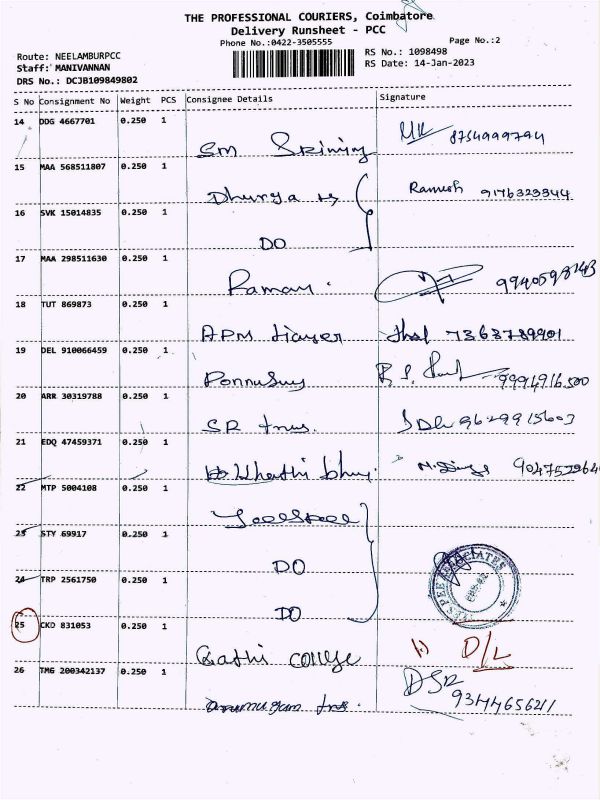 THE PROFESSIONAL COURIERS, Coimbatore
Delivery Runsheet - PCC
Phone No.:0422-3505555
Page No.:2
Route: NEELAMBURPCC
RS No.: 1098498
Staff: MANIVANNAN
RS Date: 14-Jan-2023
DRS No.: DCJB109849802
S No Consignment No Weight PCS Consignee Details Signature
14 DDG 4667701 0.250 1
8754999794
SM
15 MAA 568511807 0.250 1
Dhurga Ramesh 9176323344
16 SVK 15014835 0.250 1
DO
17 MAA 298511630 0.250 1
Raman. 9940598143
18 TUT 869873 0.250 1
APM 7363789901
19 DEL 910066459 0.250 1
Ponnusuy 9994916500
20 ARR 30319788 0.250 1
SR 9629915603
21 EDQ 47459371 0.250 1
22 MTP 5004108 0.250 1
23 STY 69917 0.250 1
DO
24 TRP 2561750 0.250 1
DO
25 CKD 831053 0.250 1
Kathi College D/L
26 TMG 200342137 0.250 1
DSR
9344656211